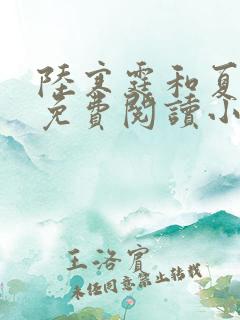 陸寒霆和夏
免費閱讀小
王洛賓
未經同意禁止轉載